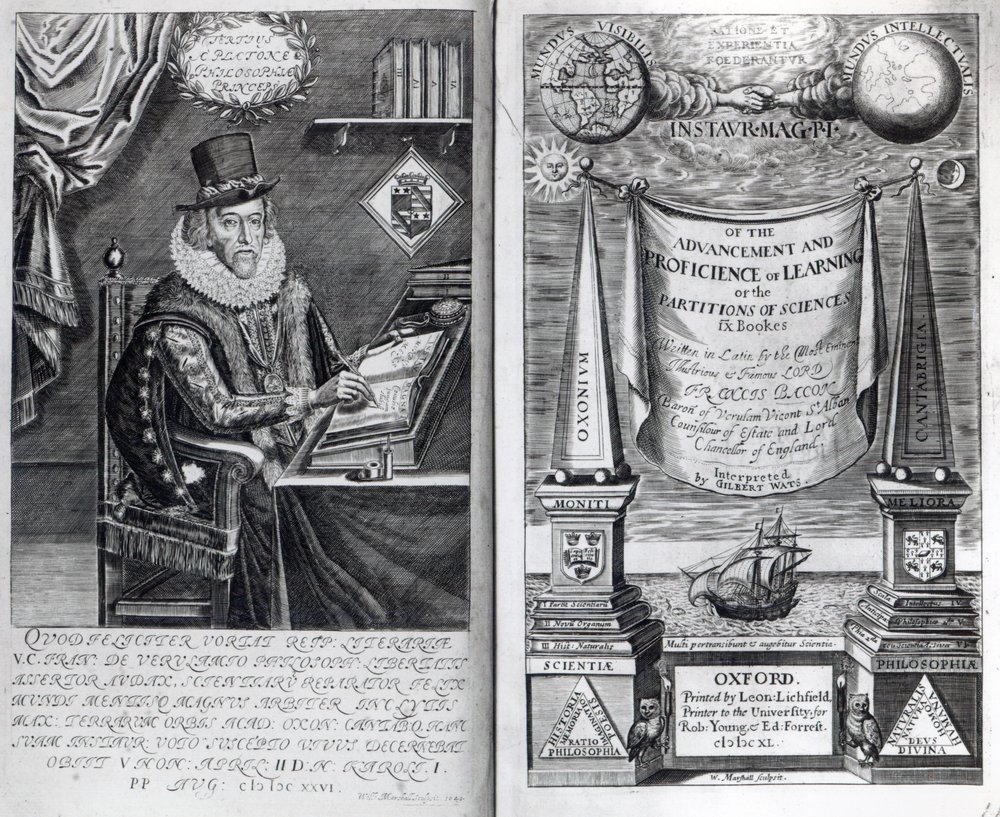 TERTIUS
A PLATONE
PHILOSOPHIÆ
PRINCEPS
III
IV
V
VI
QVOD FELICITER VORTAT REIP: LITERARIÆ
V.C. FRAN: DE VERULAMIO PHILOSOPH: LIBERTATIS
ASSERTOR AVDAX, SCIENTIARŪ REPARATOR FELIX
MUNDI MENTISQ MAGNUS ARBITER INCLYTIS
MAX: TERRARUM ORBIS ACAD: OXON: CANTABQ HANC
SUAM INSTAUR: VOTO SUSCEPTO VIVUS DECERNEBAT
OBIIT V NON: APRIL: II D.N: KAROLI. I.
PP AUG: cIɔ Iɔc XXVI.
Will: Marshall sculpsit. 1640.
MUNDVS VISIBILIS
RATIONE ET
EXPERIENTIA
FOEDERANTVR
MUNDVS INTELLECTVALIS
INSTAVR·MAG·P·I·
OF THE
ADVANCEMENT AND
PROFICIENCE OF LEARNING
or the
PARTITIONS OF SCIENCES
IX Bookes
Written in Latin by the Most Eminent
Illustrious & Famous LORD
FRANCIS BACON
Baron of Verulam Vicont St Alban
Counsilour of Estate and Lord
Chancellor of England.
Interpreted
by GILBERT WATS.
OXONIVM
CANTABRIGIA
MONITI
MELIORA
I Partit Scientiarū
II Novū Organum
III Hist: Naturalis
Scala Intellectus IV
Philosophica V
Multi pertransibunt & augebitur Scientia.
SCIENTIÆ
PHILOSOPHIÆ
HISTORIA
MEMORIA
POESIS
RATIO
PHILOSOPHIA
OXFORD.
Printed by Leon: Lichfield,
Printer to the University, for
Rob: Young, & Ed: Forrest.
cIɔ Iɔc XL.
NATURALIS
HUMANA
NATURA
HOMO
DEVS
DIVINA
W. Marshall sculpsit.